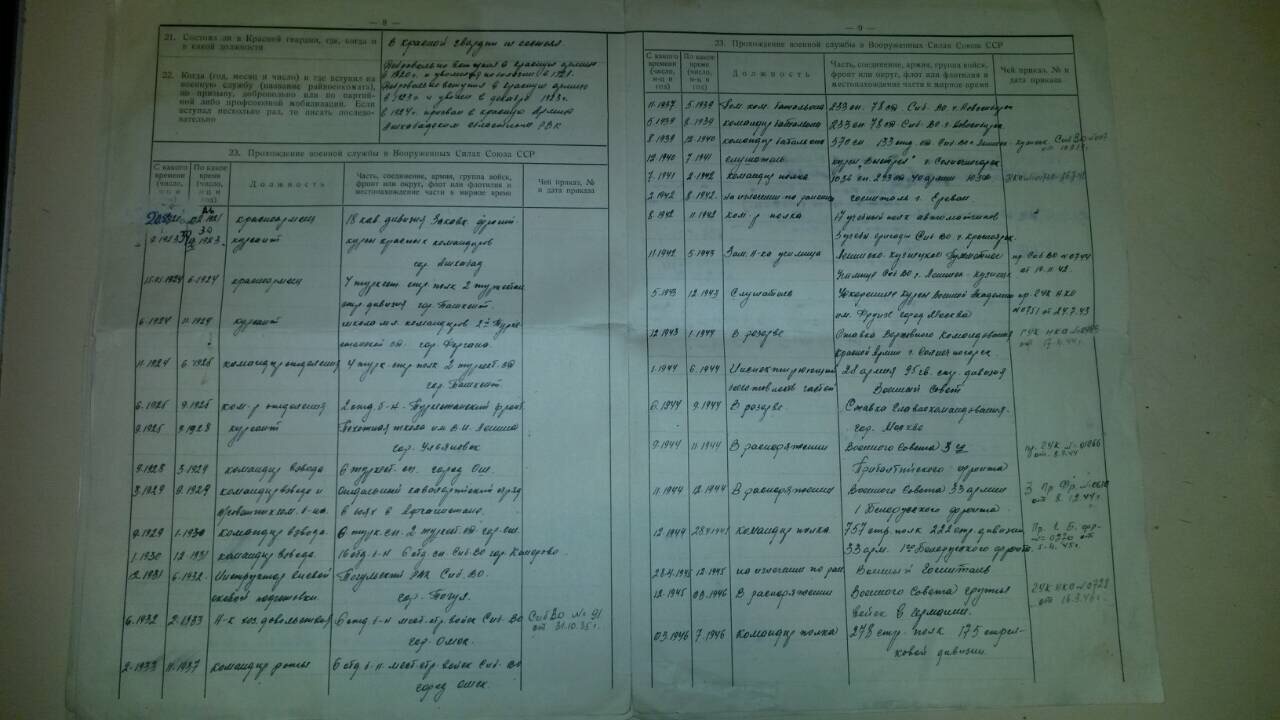 — 8 —
21. Состоял ли в Красной гвардии, где, когда и
в какой должности
В красной гвардии не состоял.
22. Когда (год, месяц и число) и где вступил на
военную службу (название райвоенкомата),
по призыву, добровольно или по партий-
ной либо профсоюзной мобилизации. Если
вступал несколько раз, то писать последо-
вательно
Добровольно вступил в красную армию
в 1920 г. и уволен в 1921.
Добровольно вступил в красную армию
в 1923 г. и уволен в декабре 1923 г.
в 1924 г. призван в красную армию
Ашхабадским областным РВК
23. Прохождение военной службы в Вооруженных Силах Союза ССР
С какого времени (число, м-ц и год)
По какое время (число, м-ц и год)
Должность
Часть, соединение, армия, группа войск, фронт или округ, флот или флотилия и местонахождение части в мирное время
Чей приказ, № и дата приказа
красноармеец 18 кав. дивизия
1923 курсант курсы красных командиров
гор. Ашхабад
1924 6.1924 красноармеец 4 туркест. стр. полк 2 туркестан.
стр. дивизия гор. Ташкент.
6.1924 11.1924 курсант школа мл. командиров 2ой Турке-
станской сд. гор. Фергана.
11.1924 6.1925 командир отделения 4 турк. стр. полк 2 туркест. сд
гор. Ташкент
6.1925 9.1925 ком-р отделения 2 отд. б-н. Туркестанский фронт.
9.1925 9.1928 курсант Пехотная школа им. В.И. Ленина
гор. Ульяновск
9.1928 3.1929 командир взвода 6 туркест. сп. город Ош.
3.1929 9.1929 командир взвода и Отдельный кавалерийский отряд
в боях в Афганистане.
9.1929 1.1930 командир взвода. 6 турк. сп. 2 туркест. сд гор. Ош.
1.1930 12.1931 командир взвода. 16 отд. б-н СибВО гор. Кемерово.
12.1931 6.1932 Инструктор вневой-
сковой подготовки РВК Сиб. ВО.
6.1932 2.1933 Н-к хоз. довольствия 6 отд. б-н мест. стр. войск Сиб. ВО
гор. Омск.
СибВО № 91
от 31.10.35 г.
2.1933 11.1937 командир роты 6 отд. б-н мест. стр. войск Сиб. ВО
город Омск.
— 9 —
23. Прохождение военной службы в Вооруженных Силах Союза ССР
С какого времени (число, м-ц и год)
По какое время (число, м-ц и год)
Должность
Часть, соединение, армия, группа войск, фронт или округ, флот или флотилия и местонахождение части в мирное время
Чей приказ, № и дата приказа
11.1937 5.1939 Пом. ком. батальона 233 сп. 78 сд Сиб. ВО г. Новосибирск
5.1939 8.1939 командир батальона 233 сп 78 сд Сиб. ВО г. Новосибирск
8.1939 12.1940 командир батальона 570 сп 133 стр. сд Сиб. ВО
12.1940 7.1941 слушатель курсы „Выстрел" г. Солнечногорск
7.1941 2.1942 командир полка 1036 сп. 293 сд 40 армии ЮЗФ
2.1942 8.1942 на излечении по ранению госпиталь г. Ереван
8.1942 11.1942 ком-р полка 17 учебный полк автоматчиков
5 учебн. бригады Сиб. ВО г. Красноярск.
11.1942 5.1943 Зам. н-ка училища Ленинск-Кузнецкое
училище Сиб. ВО г. Ленинск-Кузнецк
пр. СибВО № 0744
5.1943 12.1943 Слушатель Ускоренные курсы Военной Академии
им. Фрунзе город Москва
пр. ГУК НКО
от 24.7.43
12.1943 1.1944 В резерве Ставка Верховного Командования
красной Армии г. Солнечногорск.
1.1944 6.1944 28 армия 95 гв. стр. дивизия
Военный Совет
6.1944 9.1944 В резерве Ставка Главнокомандования.
гор. Москва
9.1944 11.1944 В распоряжении Военного Совета 3го
Прибалтийского фронта
11.1944 12.1944 В распоряжении Военного Совета 33 армии
1 Белорусского фронта
12.1944 28.4.1945 командир полка 757 стр. полк 222 стр. дивизии
33 арм. 1го Белорусского фронта
28.4.1945 12.1945 на излечении по ран. Военный Госпиталь
12.1945 03.1946 В распоряжении Военного Совета группы
войск в Германии.
ГУК НКО № 0728
03.1946 7.1946 командир полка 278 стр. полк 175 стрел-
ковой дивизии.